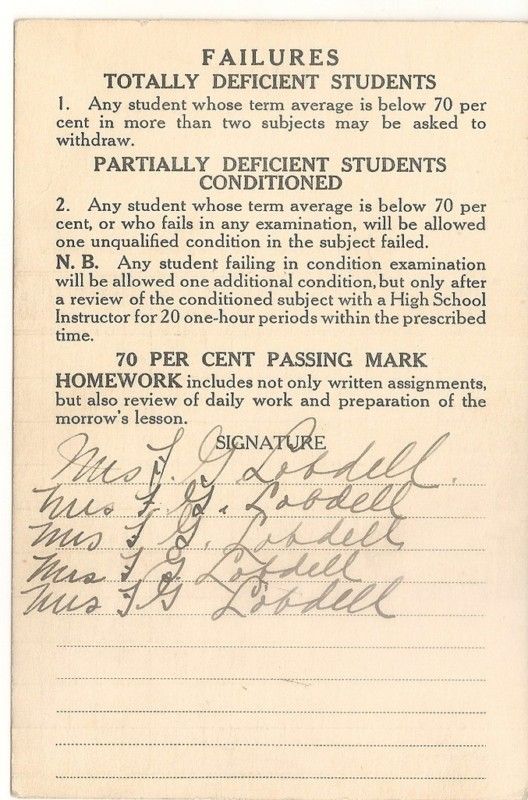 FAILURES
TOTALLY DEFICIENT STUDENTS
1. Any student whose term average is below 70 per
cent in more than two subjects may be asked to
withdraw.
PARTIALLY DEFICIENT STUDENTS
CONDITIONED
2. Any student whose term average is below 70 per
cent, or who fails in any examination, will be allowed
one unqualified condition in the subject failed.
N. B. Any student failing in condition examination
will be allowed one additional condition, but only after
a review of the conditioned subject with a High School
Instructor for 20 one-hour periods within the prescribed
time.
70 PER CENT PASSING MARK
HOMEWORK includes not only written assignments,
but also review of daily work and preparation of the
morrow's lesson.
SIGNATURE
Mrs F. G. Lobdell.
Mrs F. G. Lobdell
Mrs F G. Lobdell
Mrs F. G. Lobdell
Mrs F G Lobdell